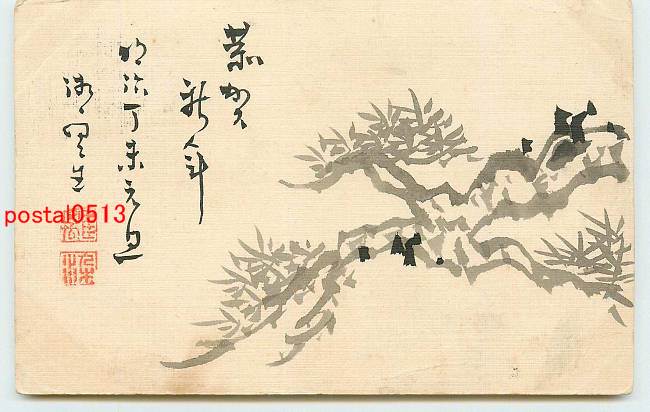 恭賀
新年
明治丁未元旦
postal0513